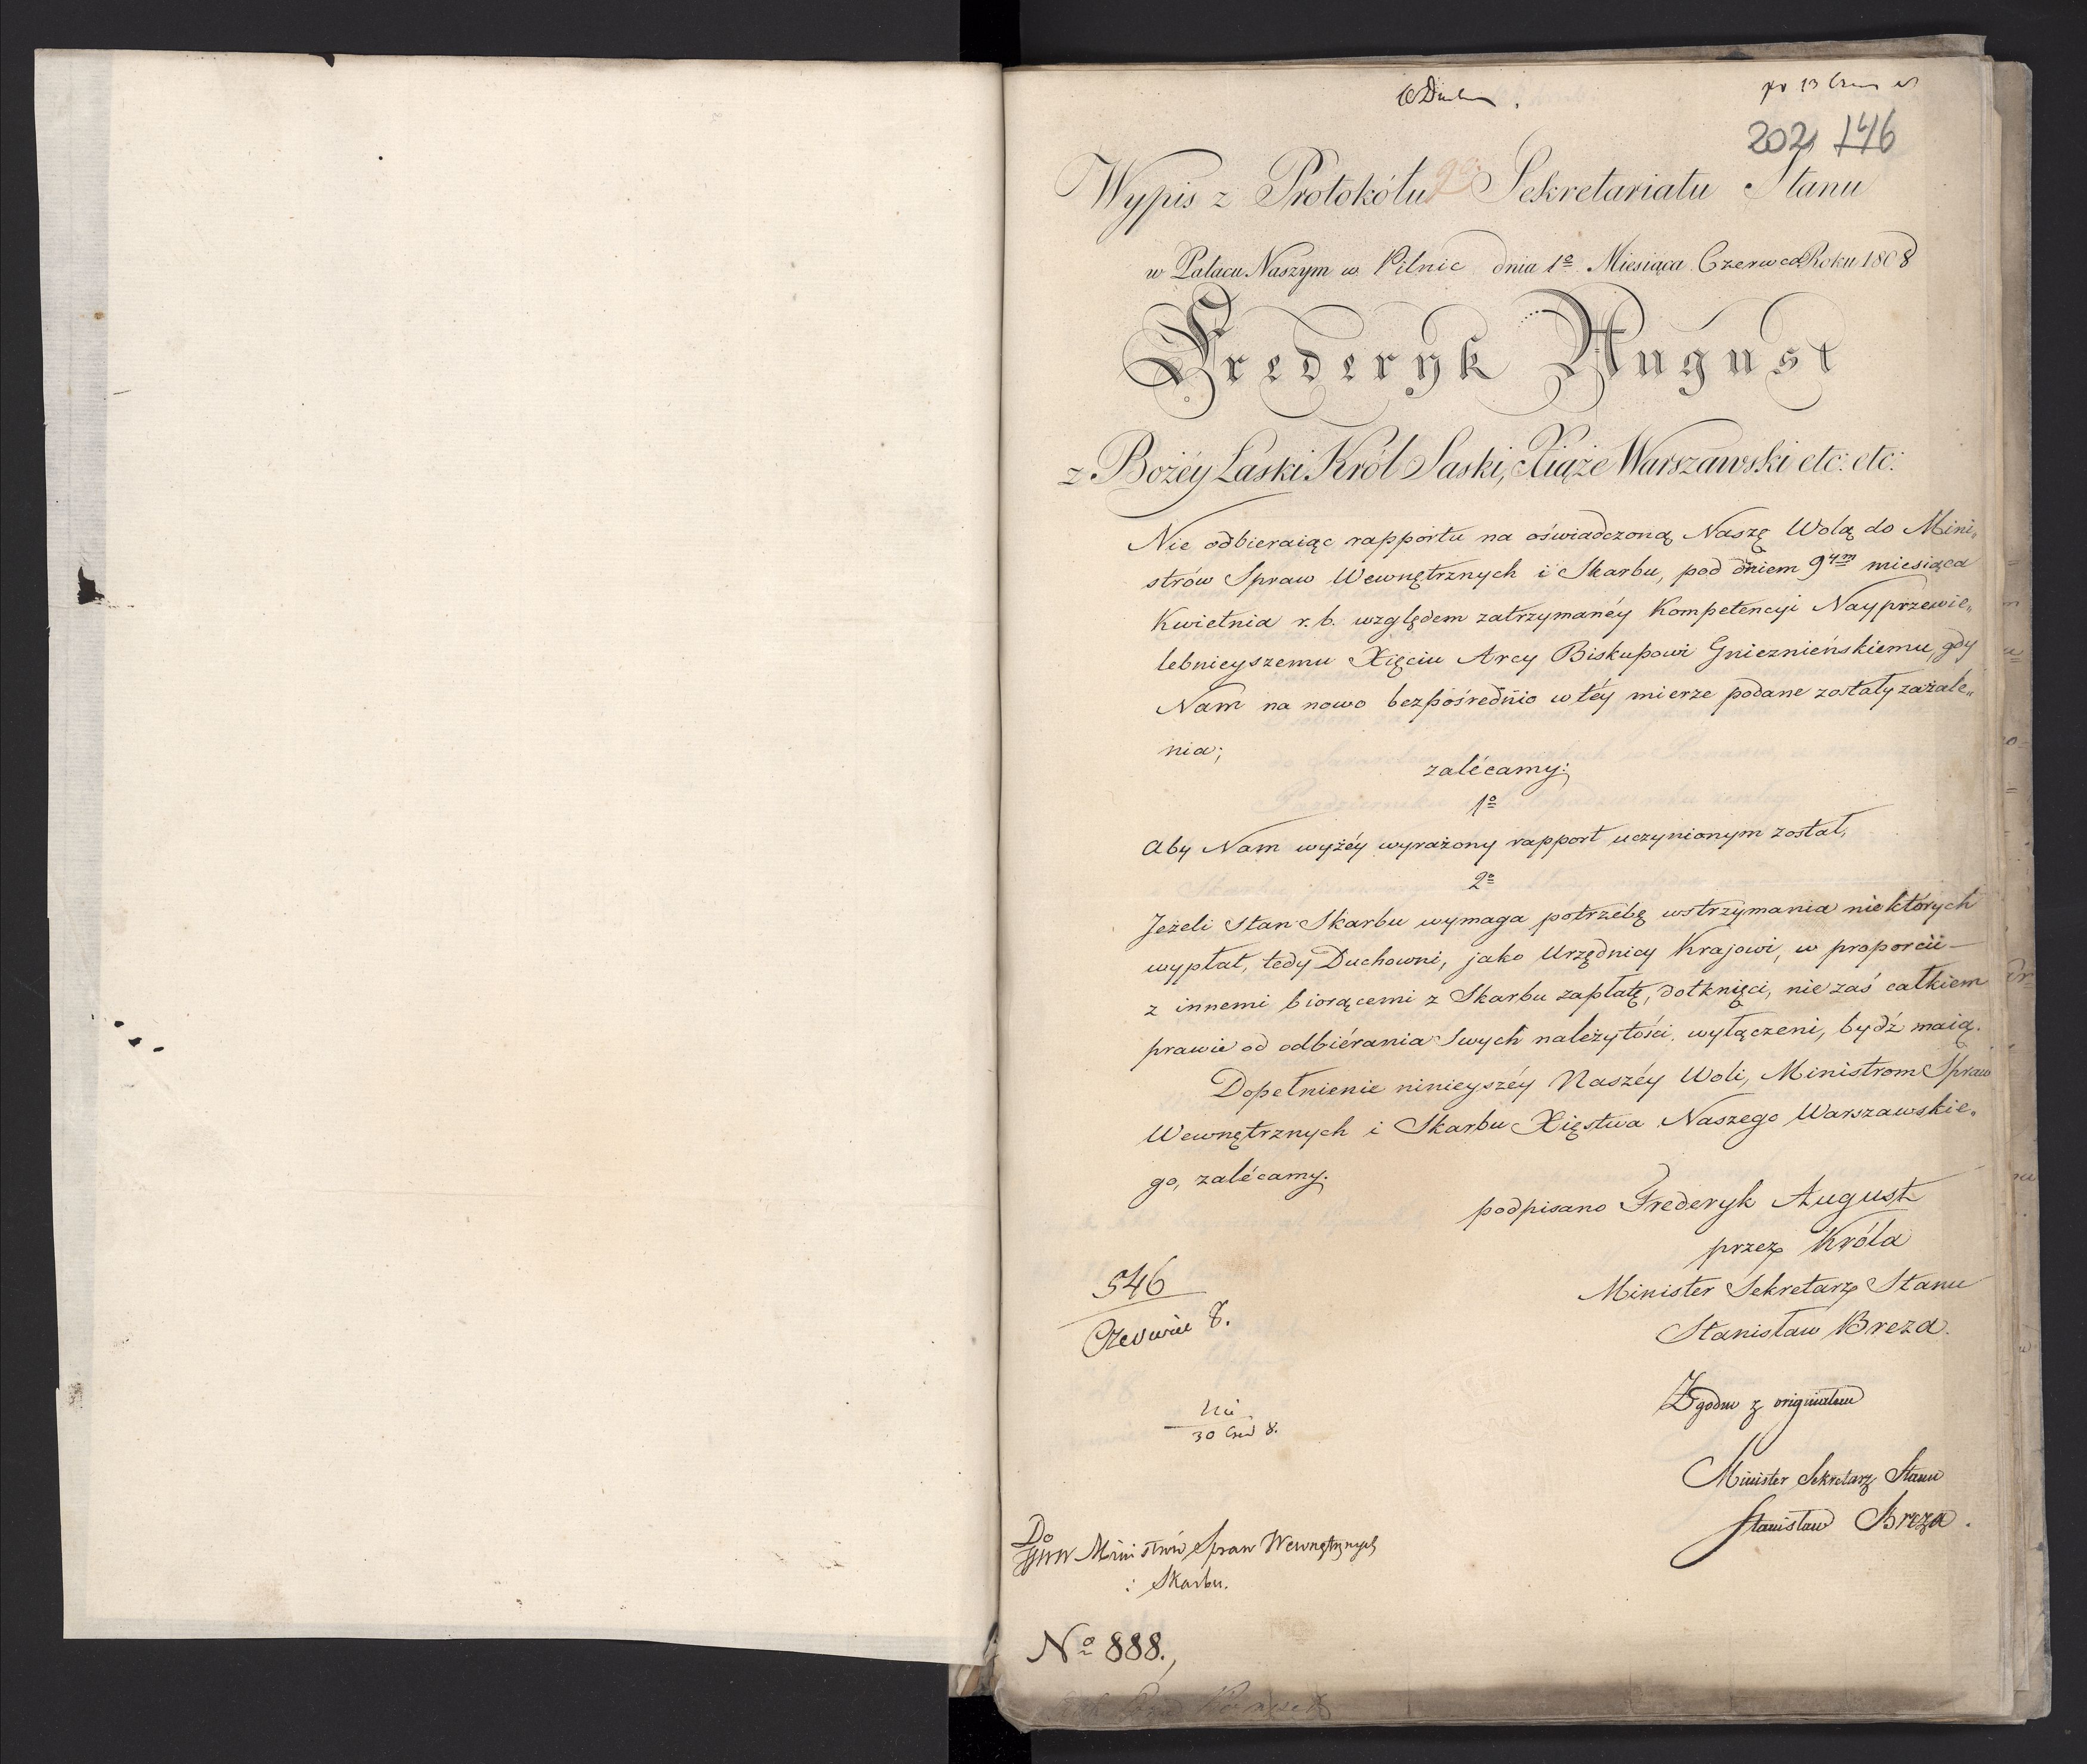 202 146
Wypis z Protokółu Sekretariatu Stanu
w Pałacu Naszym w Pilnic dnia 1º Miesiąca Czerwca Roku 1808
Frederyk August
z Bożéy Łaski Król Saski, Xiąże Warszawski etc: etc:
Nie odbieraiąc rapportu na oświadczoną Naszę Wolą do Mini„
strów Spraw Wewnętrznych i Skarbu, pod dniem 9tym miesiąca
Kwietnia r. b. względem zatrzymanéy Kompetencyi Nayprzewie„
lebnieyszemu Xięciu Arcy Biskupowi Gnieznieńskiemu, gdy
Nam na nowo bezpośrednio w téy mierze podane zostały zażale„
nia;
zalécamy:
1º
Aby Nam wyżéy wyrażony rapport uczynionym został,
2º
Jeżeli Stan Skarbu wymaga potrzébę wstrzymania niektórych
wypłat, tedy Duchowni, jako Urzędnicy Krajowi, w proporcii
z innemi biorącemi z Skarbu zapłatę, dotknięci, nie zaś całkiem
prawie od odbiérania Swych należytości, wyłączeni, bydź maią.
Dopełnienie ninieyszéy Naszéy Woli, Ministrom Spraw
Wewnętrznych i Skarbu Xięstwa Naszego Warszawskie„
go, zalécamy.
podpisano Frederyk August
przez Króla
Minister Sekretarz Stanu
Stanisław Breza.
546
Czerwiec 8.
Zgodno z originałem
30 Czer 8.
Minister Sekretarz Stanu
Stanisław Breza.
Do
Ministrów Spraw Wewnętrznych
i Skarbu.
Nº 888.,